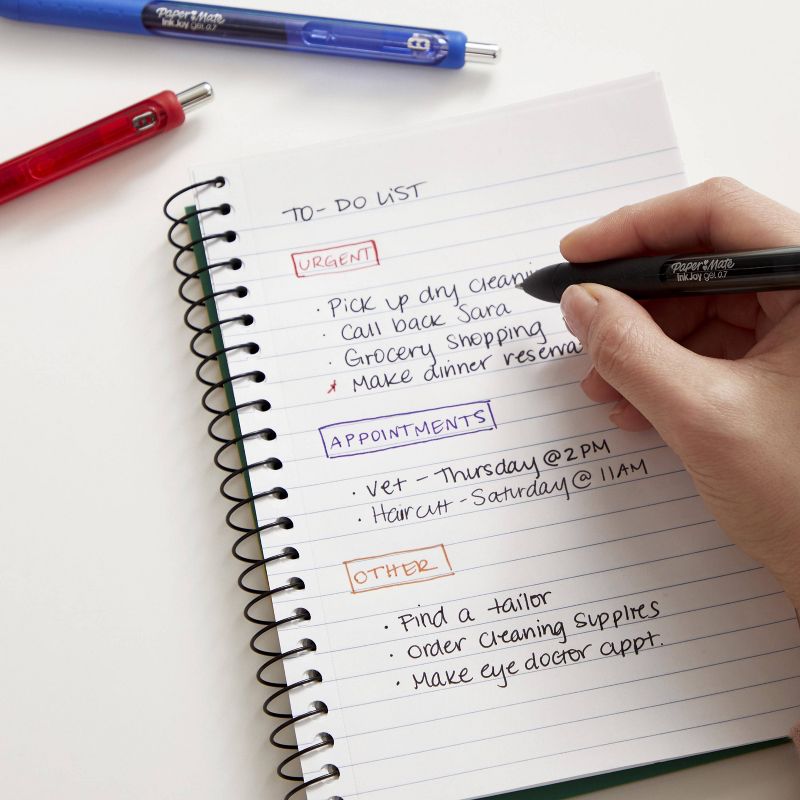 Paper Mate
InkJoy gel 0.7
TO-DO LIST
URGENT
· Pick up dry cleanin
· Call back Sara
Paper Mate
InkJoy gel 0.7
· Grocery shopping
* Make dinner reserva
APPOINTMENTS
· Vet - Thursday @ 2PM
· Haircut - Saturday @ 11AM
OTHER
· Find a tailor
· Order cleaning supplies
· Make eye doctor appt.